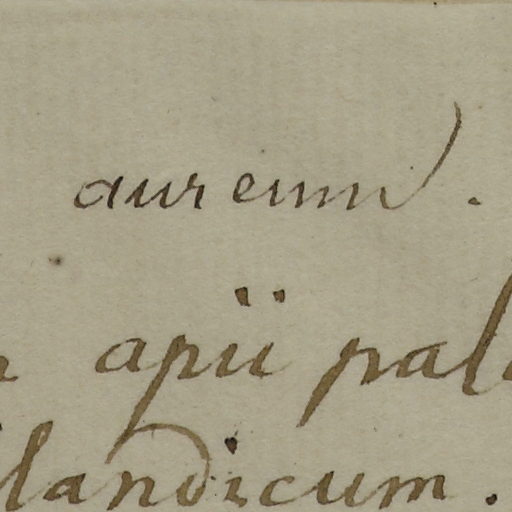 aureum.
apii pal
landicum.